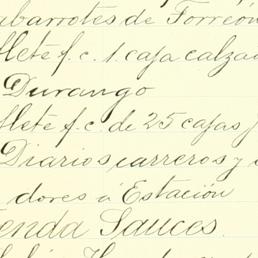 abarrotes de Torreón
flete f. c. 1 caja calza
Durango
flete f. c. de 25 cajas
Diarios carreros y
dores á Estación
enda Sauces.